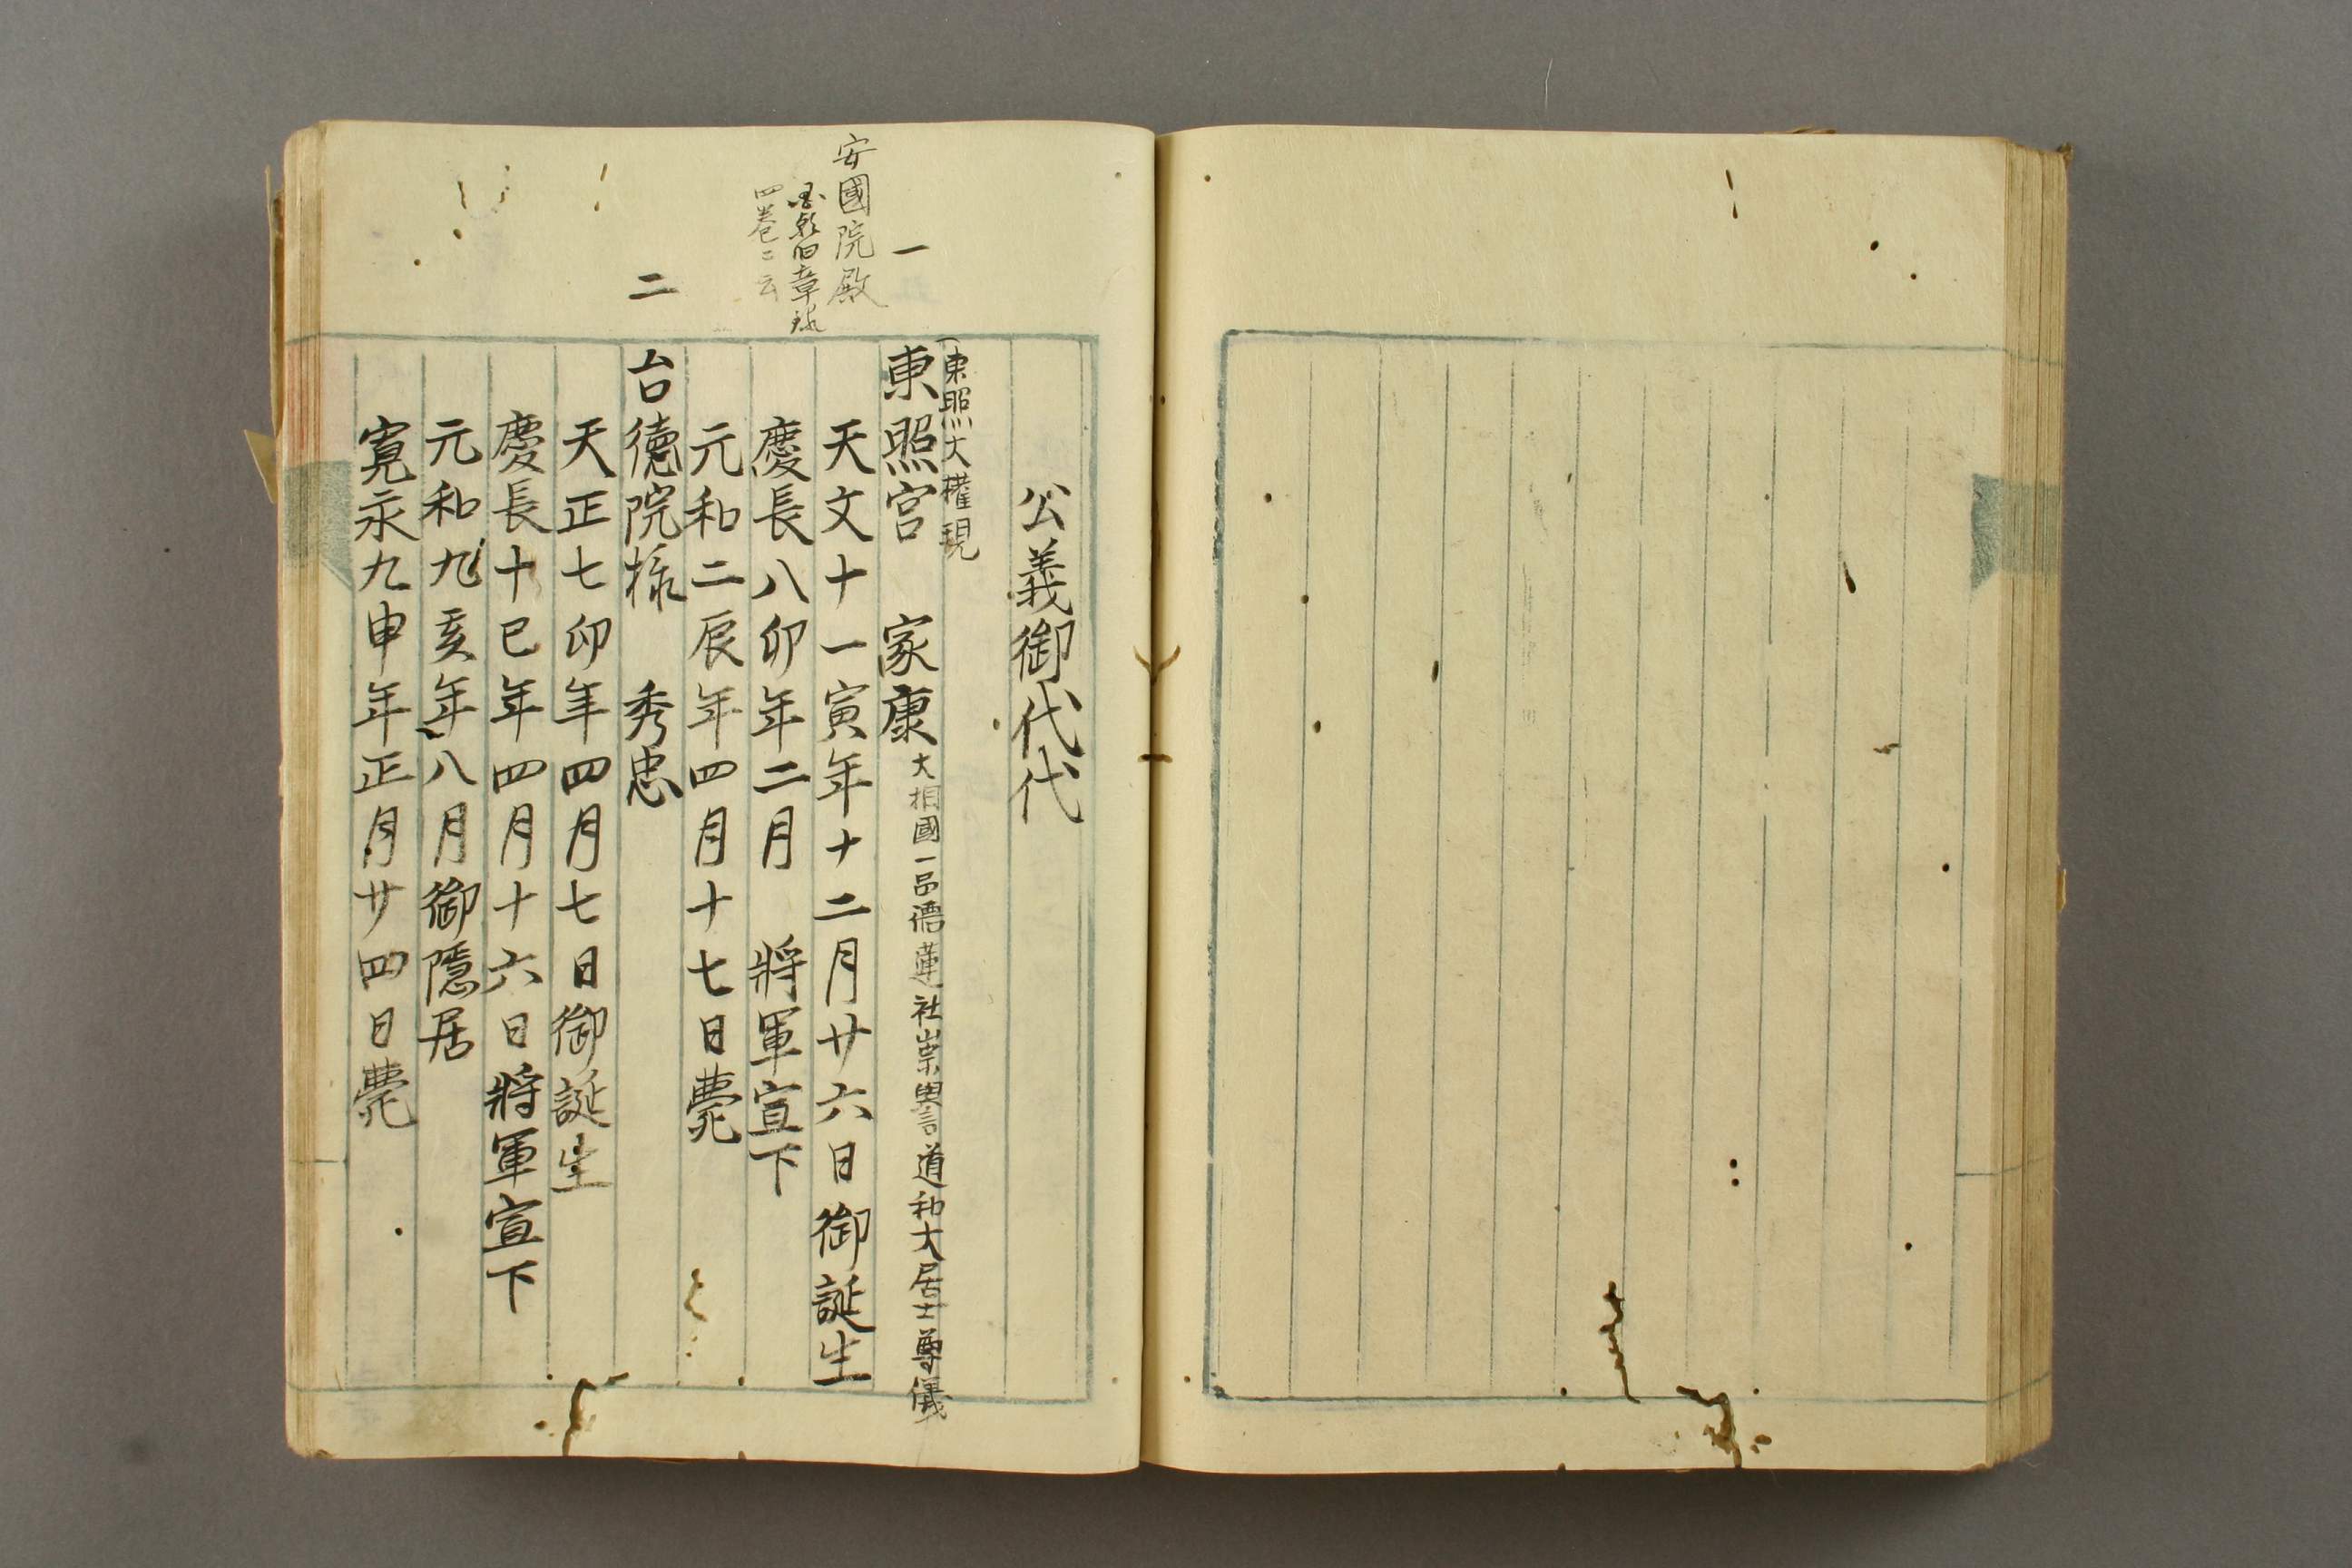 公義御代代
東照大權現
一
東照宮 家康 大相國一品德蓮社崇譽道和大居士尊儀
安國院殿
旧章録
四卷ニ云
天文十一寅年十二月廿六日御誕生
慶長八卯年二月 將軍宣下
元和二辰年四月十七日薨
二
台德院様 秀忠
天正七卯年四月七日御誕生
慶長十巳年四月十六日將軍宣下
元和九亥年八月御隱居
寛永九申年正月廿四日薨